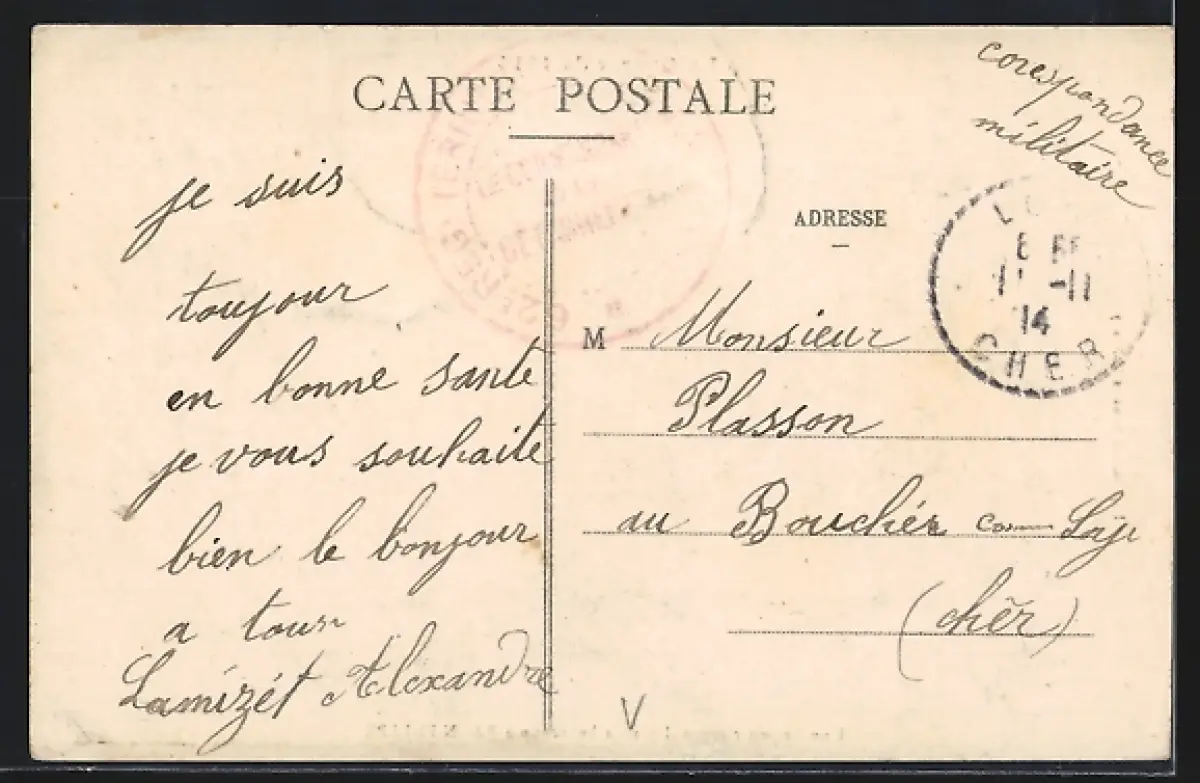 CARTE POSTALE
corespondance
militaire
je suis
toujour
en bonne sante
je vous souhaite
bien le bonjour
a tous
Lamizét Alexandre
ADRESSE
M Monsieur
Plasson
au Bouchér
(chér)
11 -11
14
CHER
V